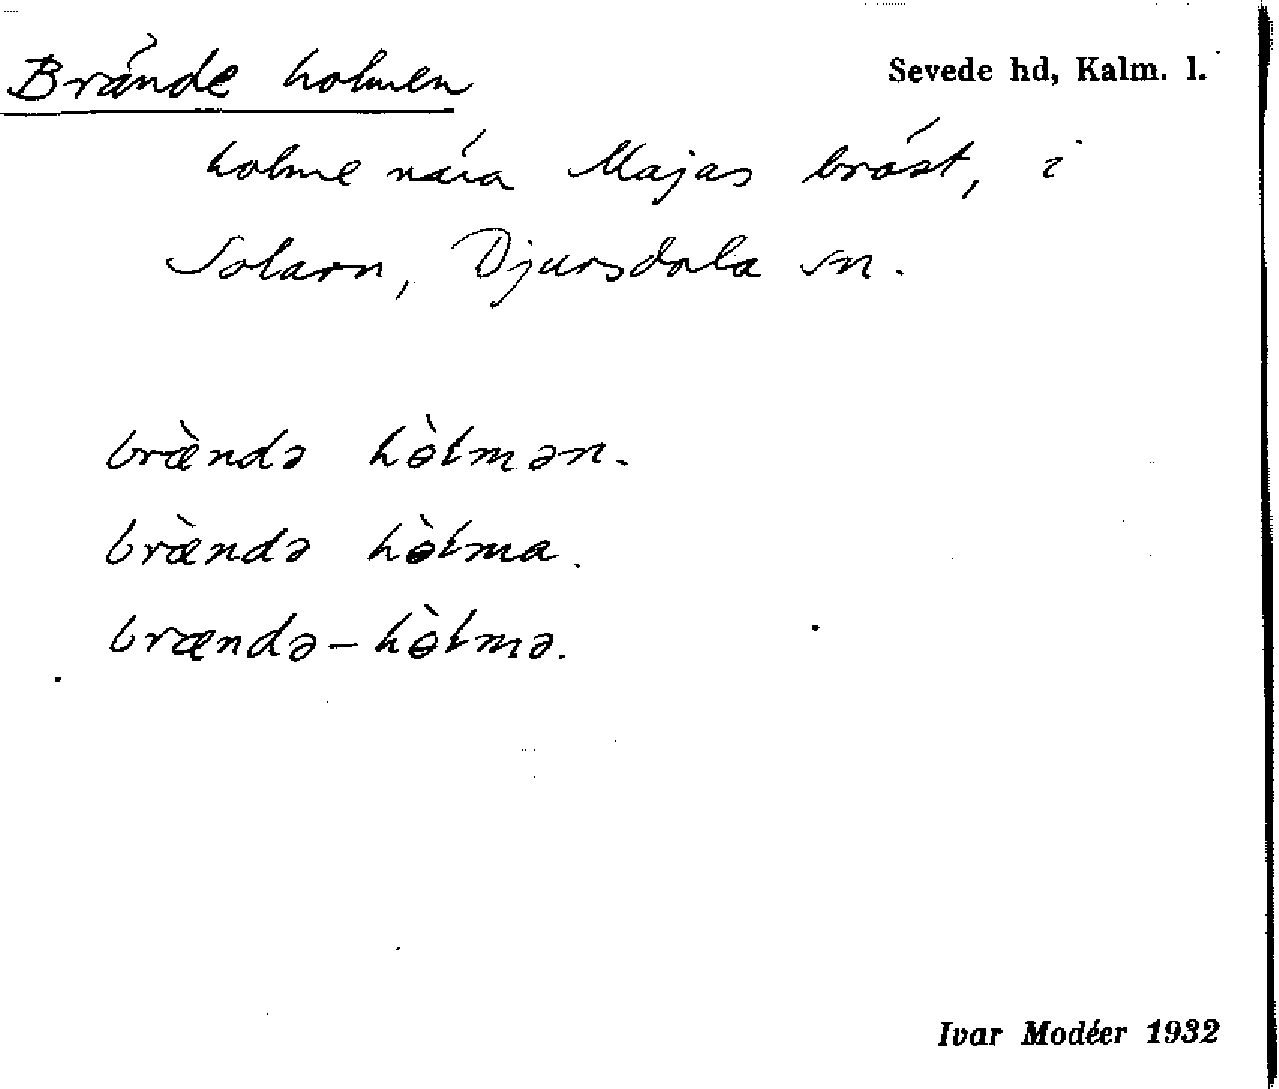 Brände holmen
Sevede hd, Kalm. l.
holme nära Majas bröst, i
Solarn, Djursdala sn.
brændə hòłmən.
brændə hòłma.
brændə-hòłmə.
Ivar Modéer 1932